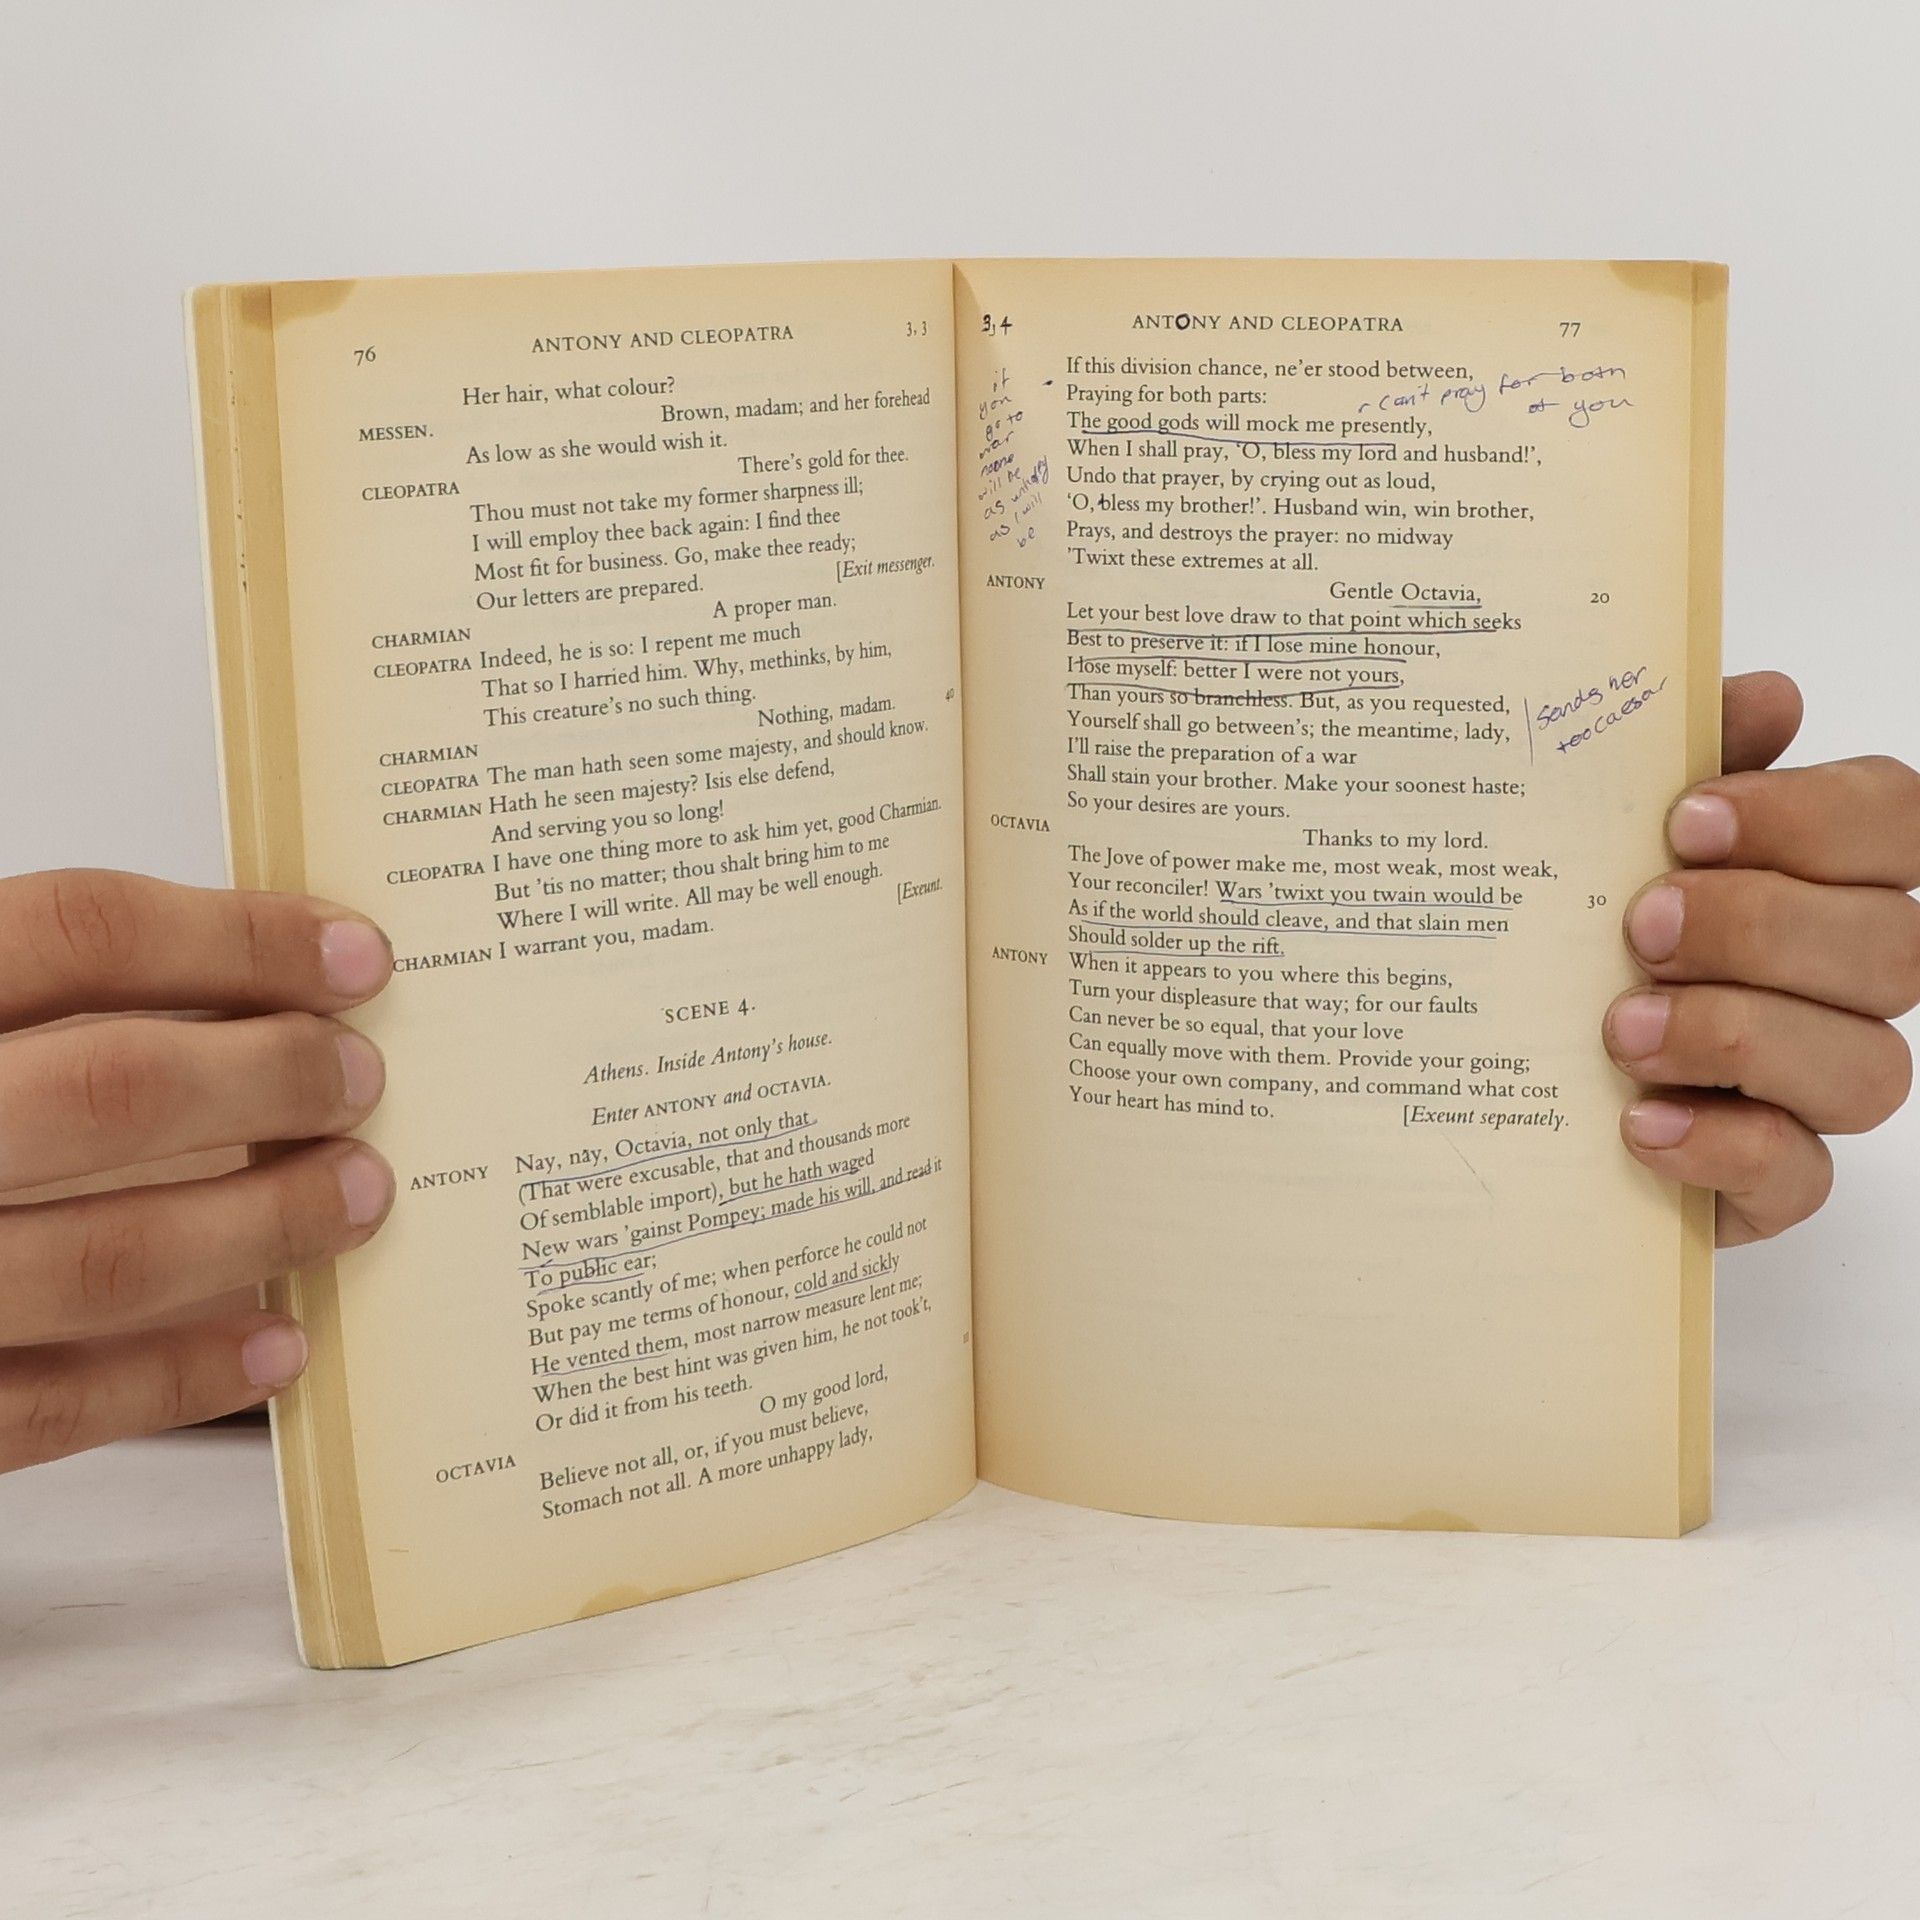 76 ANTONY AND CLEOPATRA 3, 3
Her hair, what colour?
MESSEN. Brown, madam; and her forehead
As low as she would wish it.
CLEOPATRA There's gold for thee.
Thou must not take my former sharpness ill;
I will employ thee back again: I find thee
Most fit for business. Go, make thee ready;
Our letters are prepared. [Exit messenger.
CHARMIAN A proper man.
CLEOPATRA Indeed, he is so: I repent me much
That so I harried him. Why, methinks, by him,
This creature's no such thing. 40
CHARMIAN Nothing, madam.
CLEOPATRA The man hath seen some majesty, and should know.
CHARMIAN Hath he seen majesty? Isis else defend,
And serving you so long!
CLEOPATRA I have one thing more to ask him yet, good Charmian.
But 'tis no matter; thou shalt bring him to me
Where I will write. All may be well enough.
CHARMIAN I warrant you, madam. [Exeunt.
SCENE 4.
Athens. Inside Antony's house.
Enter ANTONY and OCTAVIA.
ANTONY Nay, nay, Octavia, not only that
(That were excusable, that and thousands more
Of semblable import), but he hath waged
New wars 'gainst Pompey; made his will, and read it
To public ear;
Spoke scantly of me; when perforce he could not
But pay me terms of honour, cold and sickly
He vented them, most narrow measure lent me;
When the best hint was given him, he not took't,
Or did it from his teeth.
OCTAVIA O my good lord,
Believe not all, or, if you must believe,
Stomach not all. A more unhappy lady,
3, 4 ANTONY AND CLEOPATRA 77
If this division chance, ne'er stood between,
Praying for both parts:
can't pray for both
of you
The good gods will mock me presently,
When I shall pray, 'O, bless my lord and husband!',
Undo that prayer, by crying out as loud,
'O, bless my brother!'. Husband win, win brother,
Prays, and destroys the prayer: no midway
'Twixt these extremes at all.
if
you
go to
war
noone
will be
as unhappy
as I will
be
ANTONY Gentle Octavia, 20
Let your best love draw to that point which seeks
Best to preserve it: if I lose mine honour,
I lose myself: better I were not yours,
Than yours so branchless. But, as you requested,
Yourself shall go between's; the meantime, lady,
I'll raise the preparation of a war
Shall stain your brother. Make your soonest haste;
So your desires are yours.
Sends her
too Caesar
OCTAVIA Thanks to my lord.
The Jove of power make me, most weak, most weak,
Your reconciler! Wars 'twixt you twain would be 30
As if the world should cleave, and that slain men
Should solder up the rift.
ANTONY When it appears to you where this begins,
Turn your displeasure that way; for our faults
Can never be so equal, that your love
Can equally move with them. Provide your going;
Choose your own company, and command what cost
Your heart has mind to. [Exeunt separately.